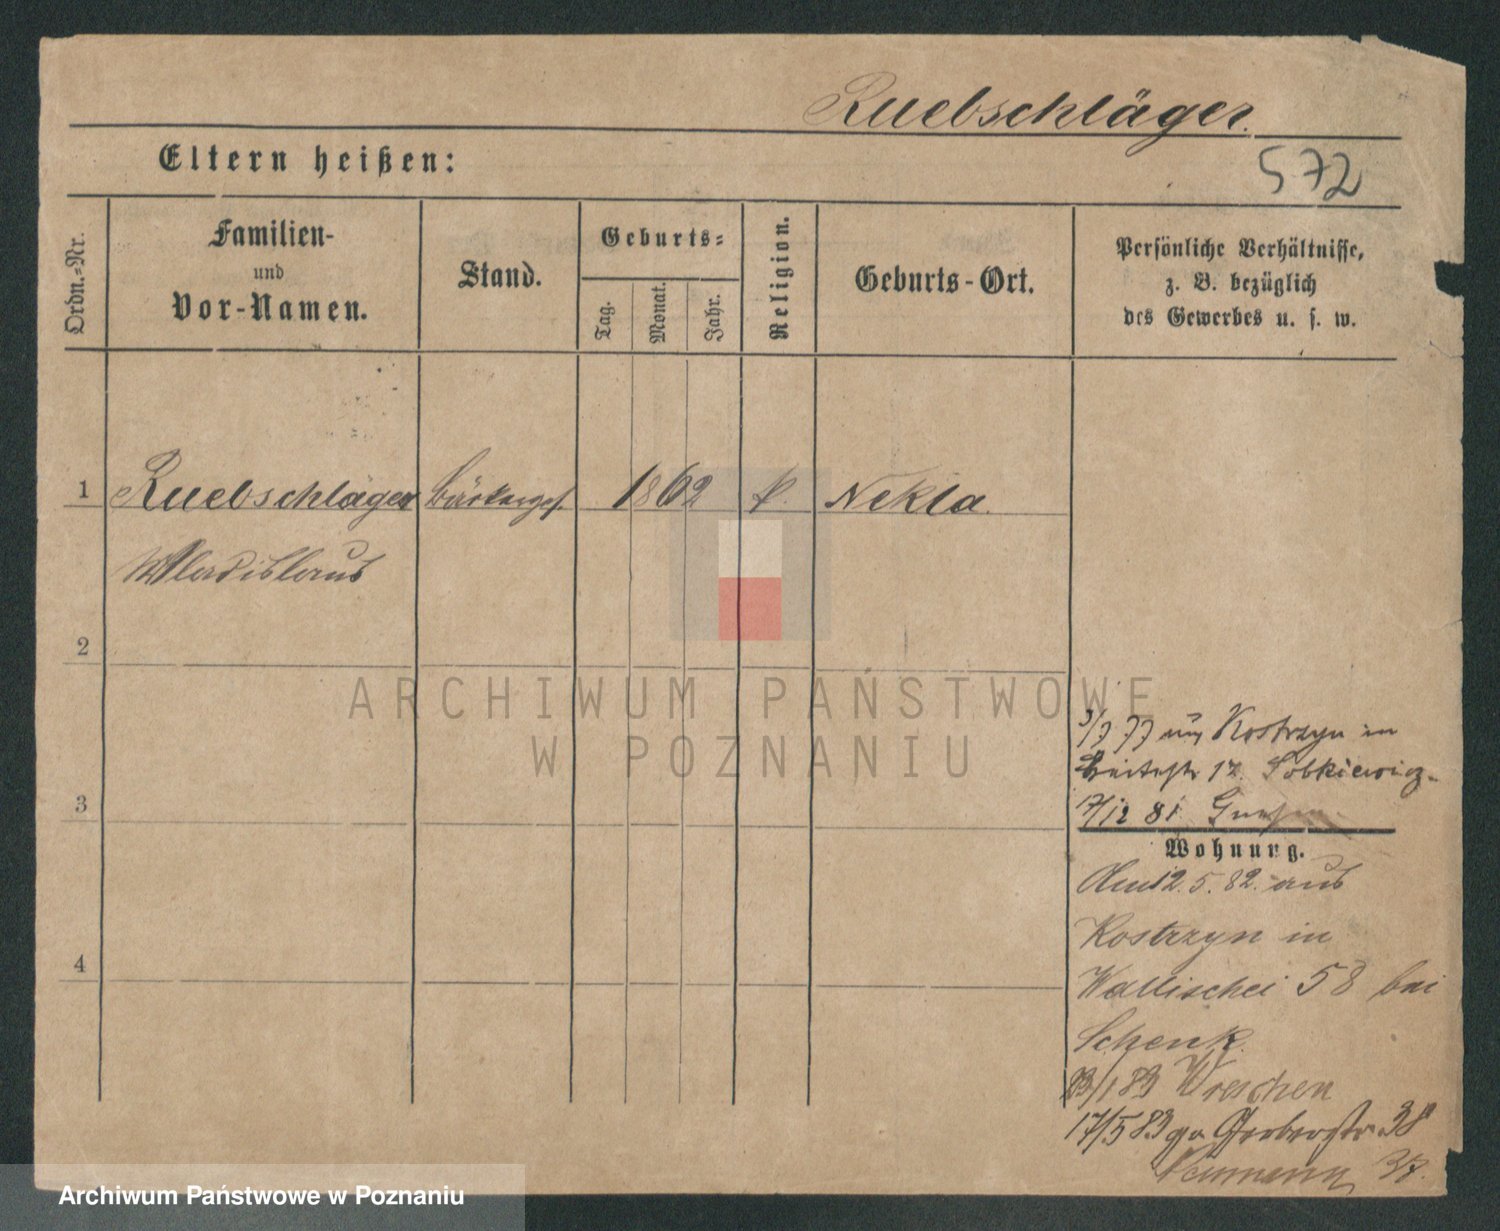 Ruebschläger.
Eltern heißen:
572
Ordn.=Nr.
Familien-
und
Vor-Namen.
Stand.
Geburts=
Tag.
Monat.
Jahr.
Religion.
Geburts-Ort.
Persönliche Verhältnisse,
z. B. bezüglich
des Gewerbes u. s. w.
1 Ruebschläger Bäckerges. 1862 k. Nekla.
Wladislaus
2
3
4
ARCHIWUM PAŃSTWOWE
W POZNANIU
3/7 77 aus Kostrzyn in
17. Sobkiewicz
17/12 81 Gnesen
Wohnung.
Am 12. 5. 82. aus
Kostrzyn in
Wallischei 58 bei
Schenk.
23/1 83 Wreschen
17/5 83 Gerberstr. 38
Neumann 37.
Archiwum Państwowe w Poznaniu